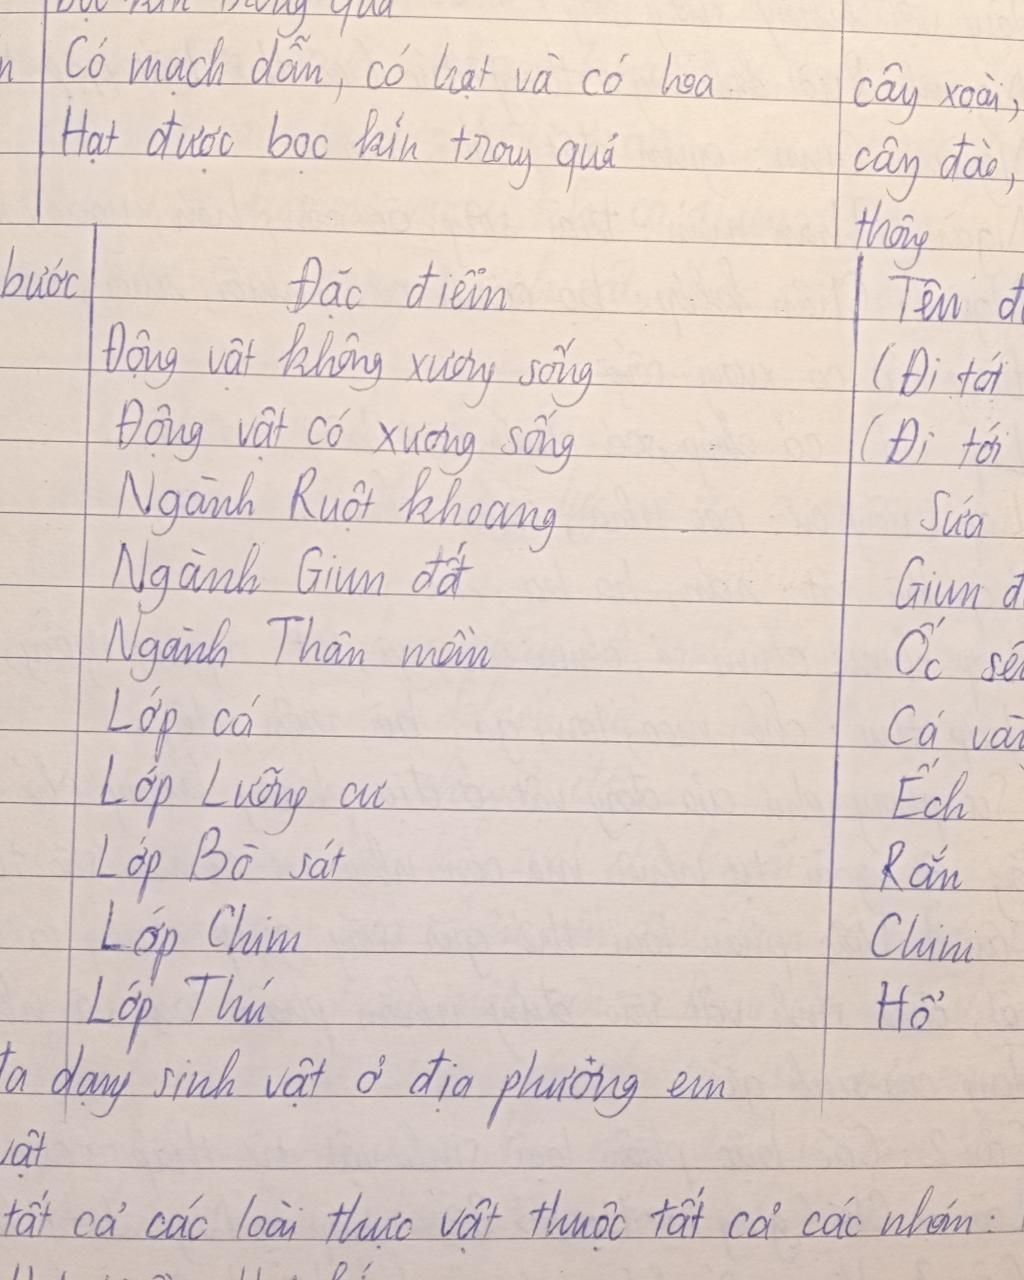 bọc kín trong quả
Có mạch dẫn, có hạt và có hoa. cây xoài,
Hạt được bọc kín trong quả cây đào,
thông
bước Đặc điểm Tên
Động vật không xương sống (Đi tới
Động vật có xương sống (Đi tới
Ngành Ruột khoang Sứa
Ngành Giun đất Giun
Ngành Thân mềm Ốc
Lớp cá Cá
Lớp Lưỡng cư Ếch
Lớp Bò sát Rắn
Lớp Chim Chim
Lớp Thú Hổ
dạng sinh vật ở địa phương em
vật
tất cả các loài thực vật thuộc tất cả các nhóm: